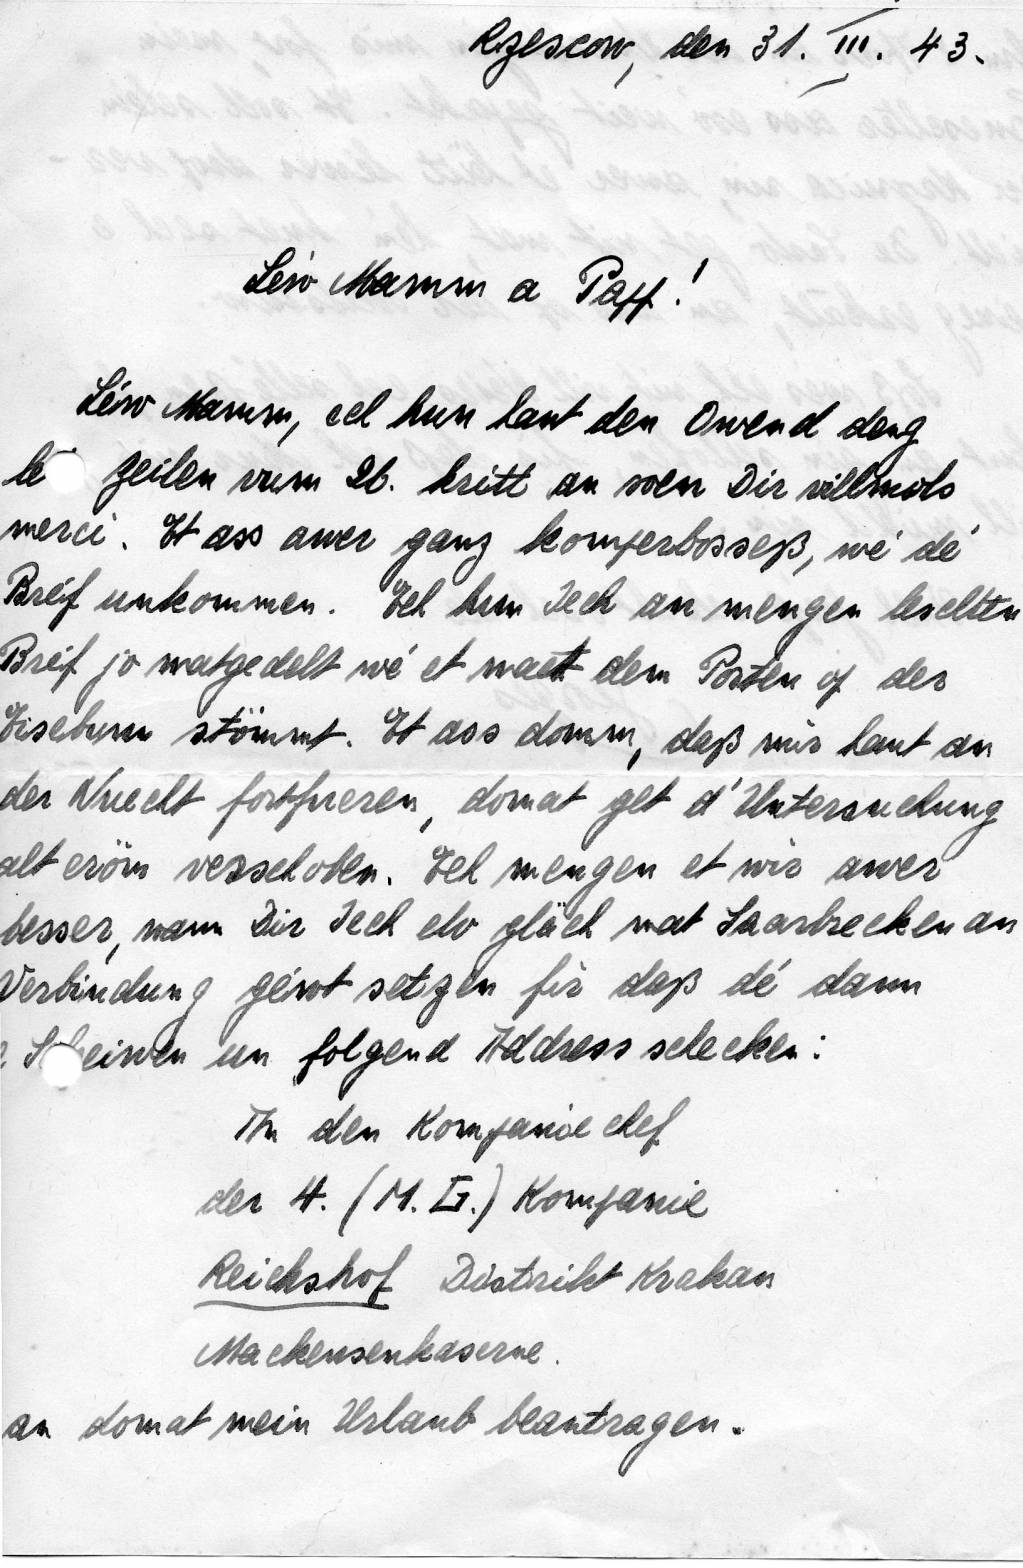 Rzescow, den 31. III. 43.
Léiw Mamm a Papp!
Léiw Mamm, ech hun haut den Owend deng
le zeilen vum 26. kritt an soen Dir villmols
merci. Et ass awer ganz komperbosseß, wé dé
Bréif unkommen. Ech hun Iech an mengen leschten
Bréif jo matgedelt wé et matt dem Posten of der
Eisebunn stömmt. Et ass domm, daß mir haut an
der Nuecht fortfueren, domat get d'Untersuchung
alt eröm verschoben. Ech mengen et wir awer
besser, wann Dir Iech elo gläch mat Saarbrecken an
Verbindung géwt setzen fir daß dé dann
Scheinen un folgend Address schecken:
An den Kompanie chef
der 4. (M.G.) Kompanie
Reichshof Distrikt Krakau
Mackensenkaserne.
an domat mein Urlaub beantragen.